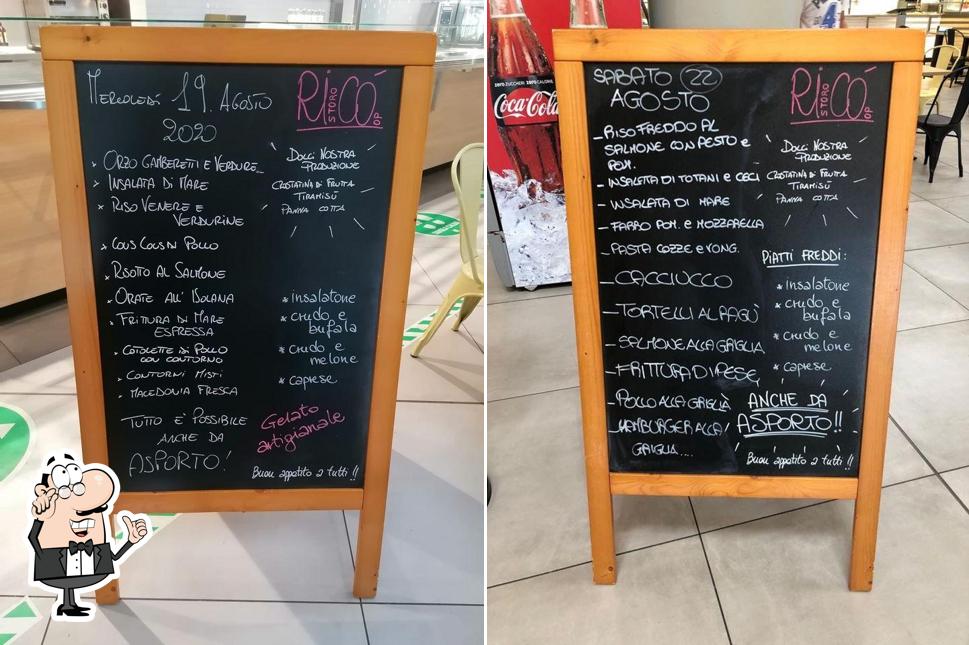 Mercoledì 19 Agosto
2020
RiCÓ
STORO
OP
Orzo Gamberetti e Verdure
Insalata di Mare
Riso Venere e
Verdurine
Cous Cous di Pollo
Risotto al Salmone
Orate all' Isolana
Frittura di Mare
espressa
Cotolette di Pollo
con contorno
Contorni Misti
Macedonia Fresca
Tutto è Possibile
anche da
ASPORTO!
Dolci Nostra
Produzione
Crostatina di Frutta
Tiramisù
Panna Cotta
* insalatone
* crudo e
bufala
* crudo e
melone
* caprese
Gelato
artigianale
Buon appetito a tutti!!
zero zuccheri zero calorie
Coca-Cola
SABATO 22
AGOSTO
RiCÓ
STORO
OP
- RISO FREDDO AL
SALMONE CON PESTO e
POM.
- INSALATA DI TOTANI e CECI
- INSALATA DI MARE
- FARRO POM. e MOZZARELLA
- PASTA COZZE e VONG.
- CACCIUCCO
- TORTELLI AL RAGÙ
- SALMONE ALLA GRIGLIA
- FRITTURA DI PESE
- POLLO ALLA GRIGLIA
- HAMBURGER ALLA
GRIGLIA....
Dolci Nostra
Produzione
Crostatina di Frutta
Tiramisù
Panna Cotta
PIATTI FREDDI:
* insalatone
* crudo e
bufala
* crudo e
melone
* caprese
ANCHE DA
ASPORTO!!
Buon appetito a tutti!!